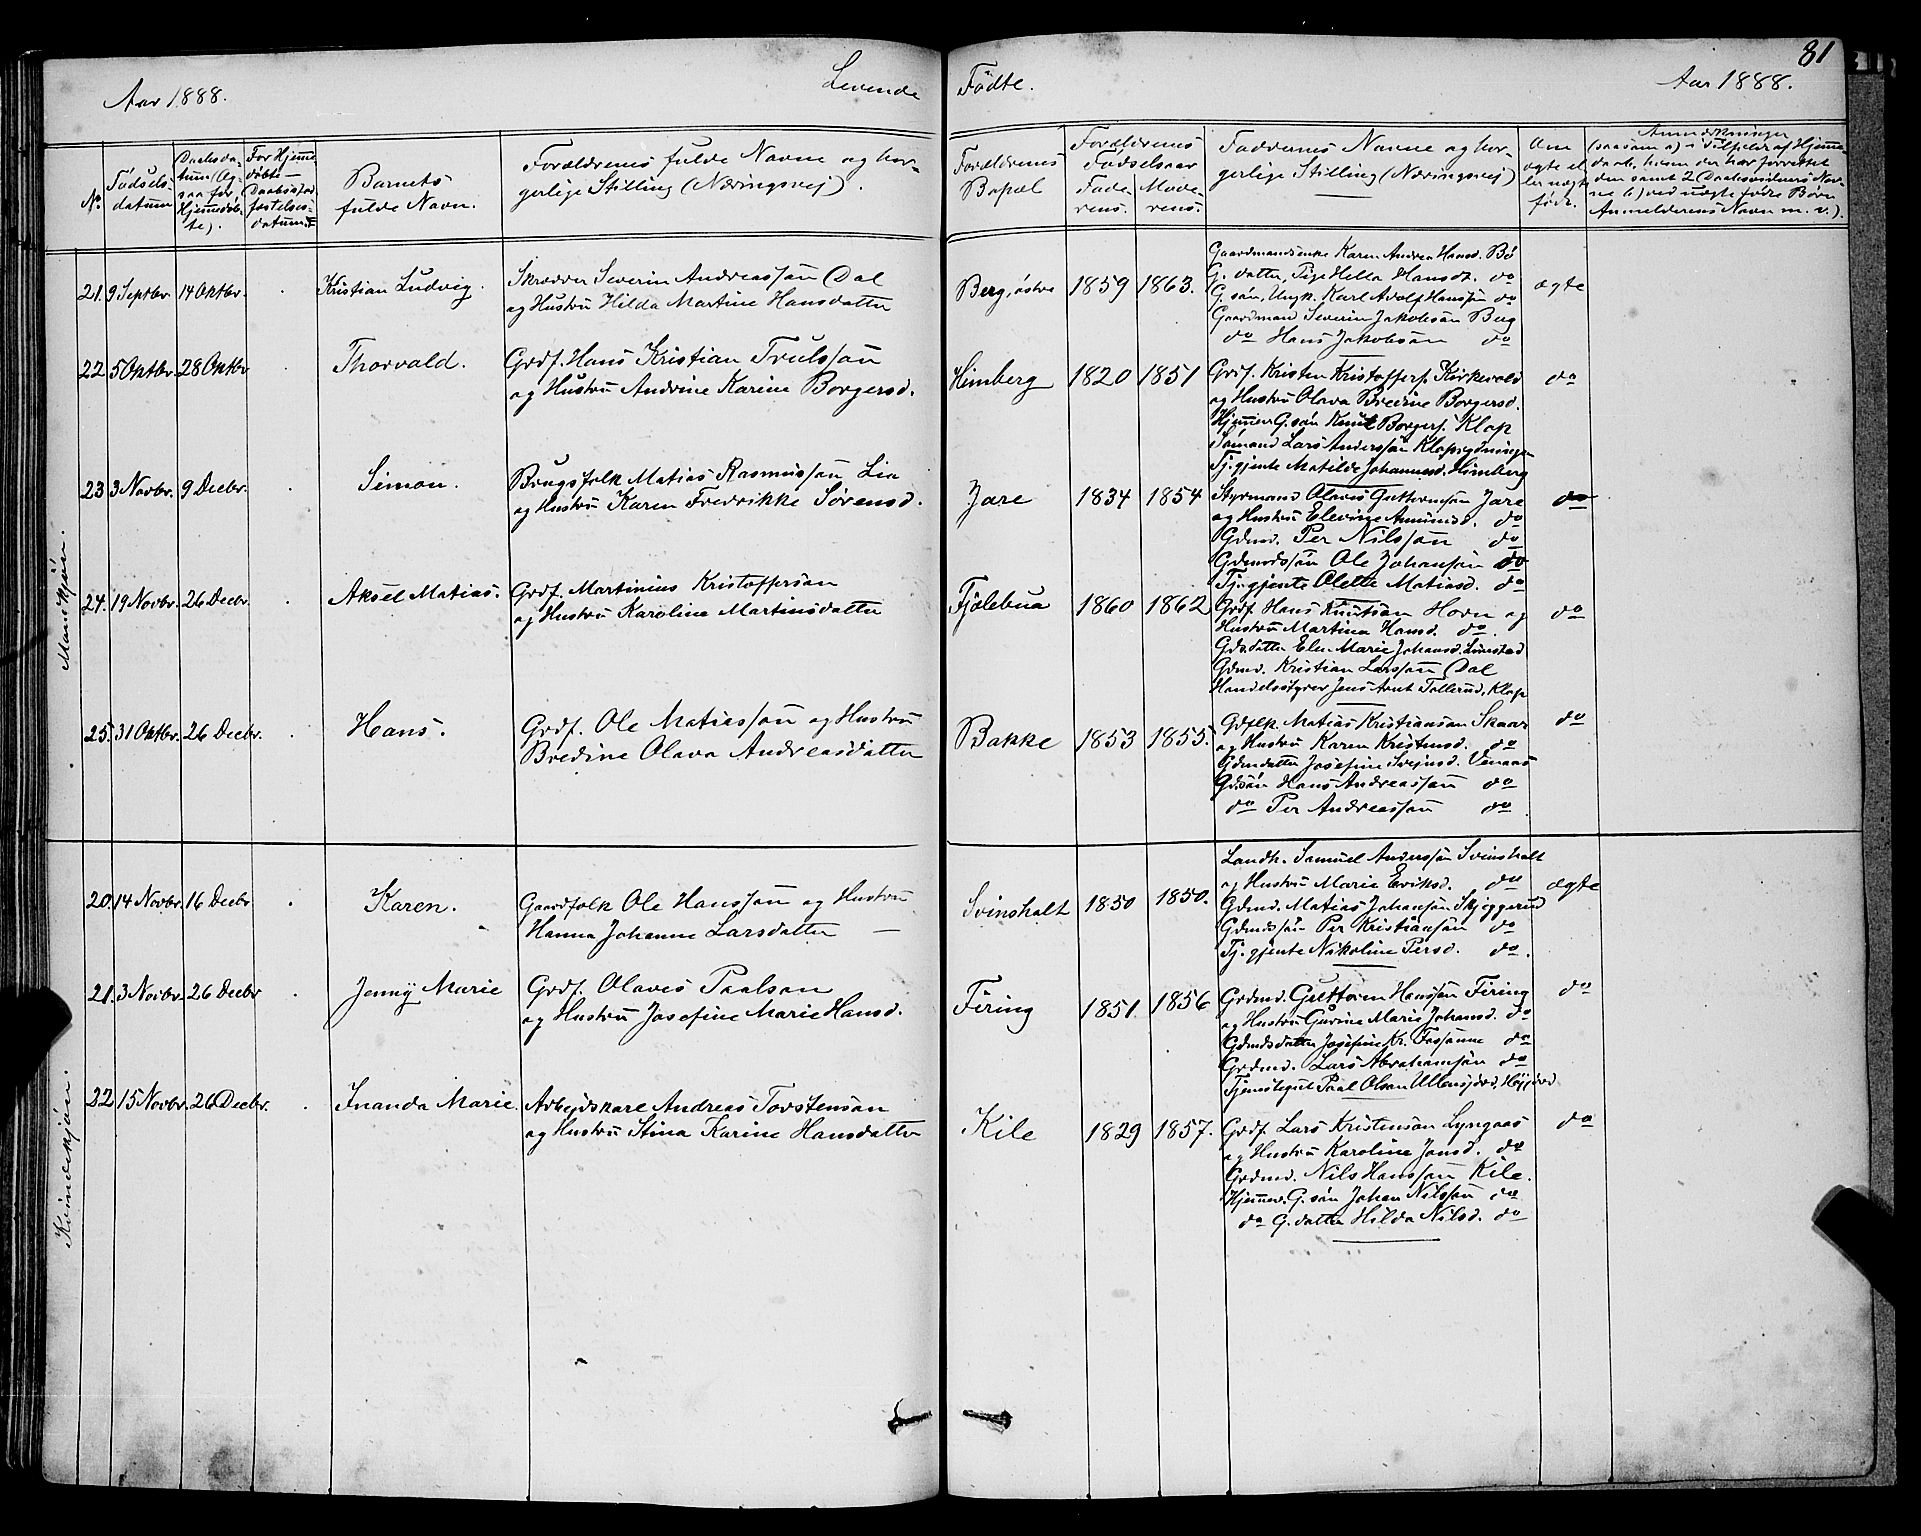 81
Aar 1888.
Levende
Fødte.
Aar 1888.
No.
Fødsels-
datum
Daabsda-
tum (Og-
saa for
Hjemmedøb-
te).
For Hjemme-
døbte —
Daabsstad-
festelses-
datum.
Barnets
fulde Navn.
Forældrenes fulde Navne og bor-
gerlige Stilling (Næringsvej).
Forældrenes
Bopæl
Forældrenes
Fødselsaar
Fade-
rens.
Mode-
rens.
Faddernes Navne og bor-
gerlige Stilling (Næringsvej)
Om
ægte el-
ler uægte
født.
Anmærkninger
(saasom a) i Tilfælde af Hjemme-
daab, hvem der har forrettet
den samt 2 Daabsvidners Nav-
ne b) ved uægte fødte Børn
Anmelderens Navn m. v.).
Mandkjøn.
21. 9 Septbr. 14 Oktbr.
Kristian Ludvig.
Skrædder Severin Andreassøn Dal
og Hustru Hilda Martine Hansdatter
Berg, østre 1859 1863.
Gaardmandsenke Karen Andrea Hansd. Bø
G. datter, Pige Hella Hansd. do
G. søn, Ungk. Karl Adolf Hanssøn do
Gaardmand Severin Jakobsøn Berg
do Hans Jakobsøn do
ægte
22. 5 Oktbr. 28 Oktbr
Thorvald.
Grdf. Hans Kristian Trulssøn
og Hustru Andrine Karine Borgersd.
Himberg 1820 1851
Grdf. Kristen Kristoffersf. Kirkevold
og Hustru Olava Bredine Borgersd.
Hjemmev. G. søn Knut Borgersf. Klop
Sømand Lars Anderssøn Kloprydningen
Tj. gjente Matilde Johannesd. Himberg
do
23. 3 Novbr. 9 Decbr.
Simon.
Brugsfolk Matias Rasmussøn Lia
og Hustru Karen Fredrikke Sørensd.
Jare 1834 1854
Styrmand Olavis Guttormsøn Jare
og Hustru Elevine Amundsd. do
Gdmd. Per Nilssøn do
Gdmdssøn Ole Johansøn do
Tj. gjente Olette Matiasd. do
do
24. 19 Novbr. 26 Decbr.
Aksel Matias.
Grdf. Martinius Kristoffersøn
og Hustru Karoline Martinsdatter
Fjølebua 1860 1862
Grdf. Hans Knutsøn Horn og
Hustru Martina Hansd. do.
Gdsdatter Elen Marie Johansd. Linnestad
Gdmd. Kristian Larssøn Dal
Handelsstyrer Jens Arnt Tollerud, Klop
do
25. 31 Oktbr. 26 Decbr.
Hans.
Grdf. Ole Matiassøn og Hustru
Bredine Olava Andreasdatter
Bakke 1853 1855.
Gdflk. Matias Kristiansøn Skaar
og Hustru Karen Kristensd. do
Gdmdatter Josefine Svejnsd. Venaas
Gdsøn Hans Andreassøn do
do Per Andreassøn do
do
Kvindekjøn.
20. 14 Novbr. 16 Decbr
Karen.
Gaardfolk Ole Hanssøn og Hustru
Hanna Johanne Larsdatter —
Svinsholt 1850 1850.
Landh. Samuel Anderssøn Svinsholt
og Hustru Marie Eriksd. do
Gdmd. Matias Johansøn Skjeggerud
Gdmdssøn Per Kristiansøn do
Tj. gjente Nikoline Persd. do.
ægte
21. 3 Novbr. 26 Decbr
Jenny Marie
Grdf. Olaves Paalsøn
og Hustru Josefine Marie Hansd.
Firing 1851. 1856
Grdmd. Guttorm Hanssøn Firing
og Hustru Gurine Marie Johansd. do
Gdmdsdatter Josefine Kr. Fossanne do
Grdmd. Lars Abrahamsøn do
Tjenstegut Paal Olsøn Ullensjord, Højjord
do
22 15 Novbr. 26 Decbr.
Inanda Marie.
Arbejdskare Andreas Torstensøn
og Hustru Stina Karine Hansdatter
Kile 1829 1857.
Grdf. Lars Kristensøn Lyngaas
og Hustru Karoline Jonsd. do
Grdmd. Nils Hanssøn Kile.
Hjemmev. G. søn Johan Nilssøn do
do G. datter Hilda Nilsd. do
do